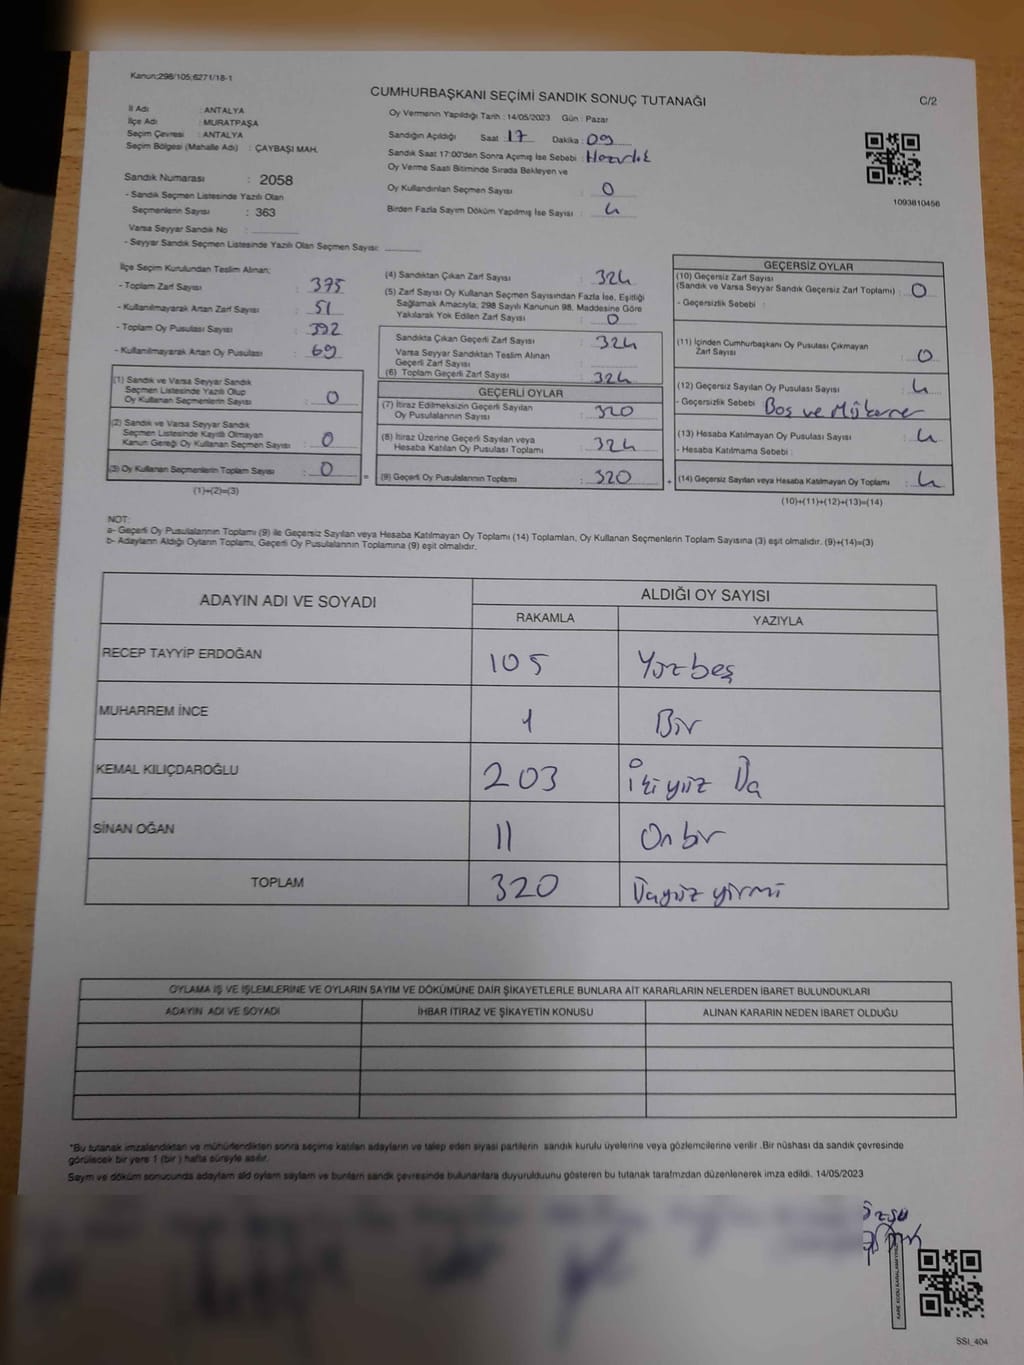 Kanun;298/105;6271/18-1
CUMHURBAŞKANI SEÇİMİ SANDIK SONUÇ TUTANAĞI
C/2
İl Adı : ANTALYA
İlçe Adı : MURATPAŞA
Seçim Çevresi : ANTALYA
Seçim Bölgesi (Mahalle Adı) : ÇAYBAŞI MAH.
Sandık Numarası : 2058
- Sandık Seçmen Listesinde Yazılı Olan
Seçmenlerin Sayısı : 363
Varsa Seyyar Sandık No :
- Seyyar Sandık Seçmen Listesinde Yazılı Olan Seçmen Sayısı:
Oy Vermenin Yapıldığı Tarih : 14/05/2023 Gün : Pazar
Sandığın Açıldığı Saat : 17 Dakika : 09
Sandık Saat 17:00'den Sonra Açımış İse Sebebi : Hazırlık
Oy Verme Saati Bitiminde Sırada Bekleyen ve
Oy Kullandırılan Seçmen Sayısı : 0
Birden Fazla Sayım Döküm Yapılmış İse Sayısı : 4
1093810456
İlçe Seçim Kurulundan Teslim Alınan;
- Toplam Zarf Sayısı : 375
- Kullanılmayarak Artan Zarf Sayısı : 51
- Toplam Oy Pusulası Sayısı : 392
- Kullanılmayarak Artan Oy Pusulası : 69
(1) Sandık ve Varsa Seyyar Sandık
Seçmen Listesinde Yazılı Olup
Oy Kullanan Seçmenlerin Sayısı : 0
(2) Sandık ve Varsa Seyyar Sandık
Seçmen Listesinde Kayıtlı Olmayan
Kanun Gereği Oy Kullanan Seçmen Sayısı : 0
(3) Oy Kullanan Seçmenlerin Toplam Sayısı : 0
(1)+(2)=(3)
(4) Sandıktan Çıkan Zarf Sayısı : 324
(5) Zarf Sayısı Oy Kullanan Seçmen Sayısından Fazla İse, Eşitliği
Sağlamak Amacıyla; 298 Sayılı Kanunun 98. Maddesine Göre
Yakılarak Yok Edilen Zarf Sayısı : 0
Sandıkta Çıkan Geçerli Zarf Sayısı : 324
Varsa Seyyar Sandıktan Teslim Alınan
Geçerli Zarf Sayısı :
(6) Toplam Geçerli Zarf Sayısı : 324
GEÇERLİ OYLAR
(7) İtiraz Edilmeksizin Geçerli Sayılan
Oy Pusulalarının Sayısı : 320
(8) İtiraz Üzerine Geçerli Sayılan veya
Hesaba Katılan Oy Pusulası Toplamı : 324
= (9) Geçerli Oy Pusulalarının Toplamı : 320
GEÇERSİZ OYLAR
(10) Geçersiz Zarf Sayısı
(Sandık ve Varsa Seyyar Sandık Geçersiz Zarf Toplamı) : 0
- Geçersizlik Sebebi :
(11) İçinden Cumhurbaşkanı Oy Pusulası Çıkmayan
Zarf Sayısı : 0
(12) Geçersiz Sayılan Oy Pusulası Sayısı : 4
- Geçersizlik Sebebi : Boş ve Mükerrer
(13) Hesaba Katılmayan Oy Pusulası Sayısı : 4
- Hesaba Katılmama Sebebi :
+ (14) Geçersiz Sayılan veya Hesaba Katılmayan Oy Toplamı : 4
(10)+(11)+(12)+(13)=(14)
NOT:
a- Geçerli Oy Pusulalarının Toplamı (9) ile Geçersiz Sayılan veya Hesaba Katılmayan Oy Toplamı (14) Toplamları, Oy Kullanan Seçmenlerin Toplam Sayısına (3) eşit olmalıdır. (9)+(14)=(3)
b- Adayların Aldığı Oyların Toplamı, Geçerli Oy Pusulalarının Toplamına (9) eşit olmalıdır.
ADAYIN ADI VE SOYADI
ALDIĞI OY SAYISI
RAKAMLA YAZIYLA
RECEP TAYYİP ERDOĞAN 105 Yüzbeş
MUHARREM İNCE 1 Bir
KEMAL KILIÇDAROĞLU 203 İkiyüz Üç
SİNAN OĞAN 11 Onbir
TOPLAM 320 Üçyüz yirmi
OYLAMA İŞ VE İŞLEMLERİNE VE OYLARIN SAYIM VE DÖKÜMÜNE DAİR ŞİKAYETLERLE BUNLARA AİT KARARLARIN NELERDEN İBARET BULUNDUKLARI
ADAYIN ADI VE SOYADI İHBAR İTİRAZ VE ŞİKAYETİN KONUSU ALINAN KARARIN NEDEN İBARET OLDUĞU
*Bu tutanak imzalandıktan ve mühürlendikten sonra seçime katılan adayların ve talep eden siyasi partilerin sandık kurulu üyelerine veya gözlemcilerine verilir .Bir nüshası da sandık çevresinde
görülecek bir yere 1 (bir ) hafta süreyle asılır.
Sayım ve döküm sonucunda adayların aldı oyların sayları ve bunların sandk çevresinde bulunanlara duyurulduunu gösteren bu tutanak tarafmzdan düzenlenerek imza edildi. 14/05/2023
SSI_404